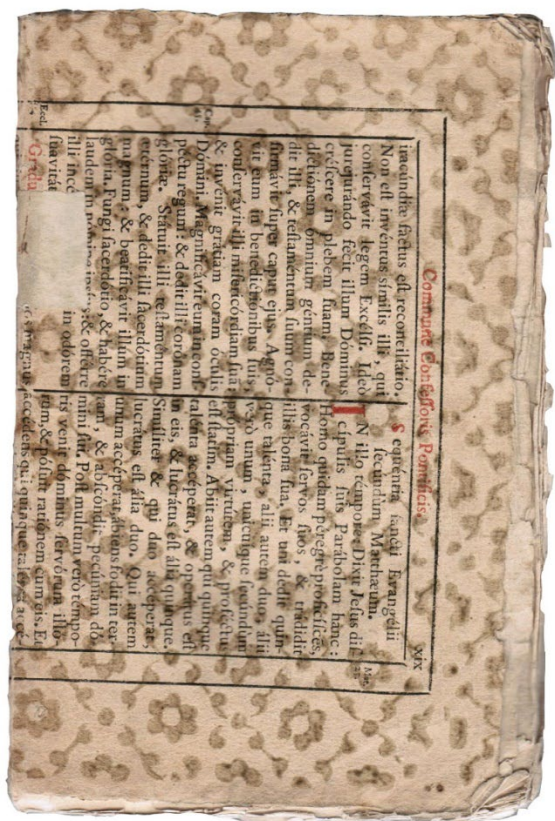 Commune Confessoris Pontificis.
xix
iracúndiæ factus est reconciliátio.
Non est invéntus símilis illi, qui
conservávit legem Excélsi. Ideò
jurejurándo fecit illum Dóminus
créscere in plebem suam. Bene-
dictiónem ómnium géntium de-
dit illi, & testaméntum suum con-
firmávit super caput ejus. Agnó-
vit eum in benedictiónibus suis,
conservávit illi misericórdiam suã:
& invénit grátiam coram óculis
Dómini. Magnificávit eum in con-
spéctu regum: & dedit illi corónam
glóriæ. Státuit illi testaméntum
ætérnum, & dedit illi sacerdótium
magnum: & beatificávit illum in
glória. Fungi sacerdótio, & habére
laudem in nómine ipsíus; & offérre
illi incé in odórem
suavitá
Gradu
Eccl.
Cap.
Sequéntia sancti Evangélii
secundùm Matthæum.
IN illo témpore: Dixit Jesus di-
scípulis suis Parábolam hanc:
Homo quidam péregrè proficíscés,
vocávit servos suos, & trádidit
illis bona sua. Et uni dedit quin-
que talénta, álii autem duo, álii
verò unum, unicuíque secúndùm
própriam virtútem, & proféctus
est statim. Abiit autem qui quinque
talénta accéperat, & operátus est
in eis, & lucrátus est ália quinque.
Simíliter & qui duo accéperat,
lucrátus est ália duo. Qui autem
unum accéperat, ábiens fodit in ter-
ram, & abscóndit pecúniam dó-
mini sui. Post multum verò témpo-
ris venit dóminus servórum illó-
rum, & pósuit ratiónem cum eis. Et
accédens qui quinque talénta accé-
Mat.